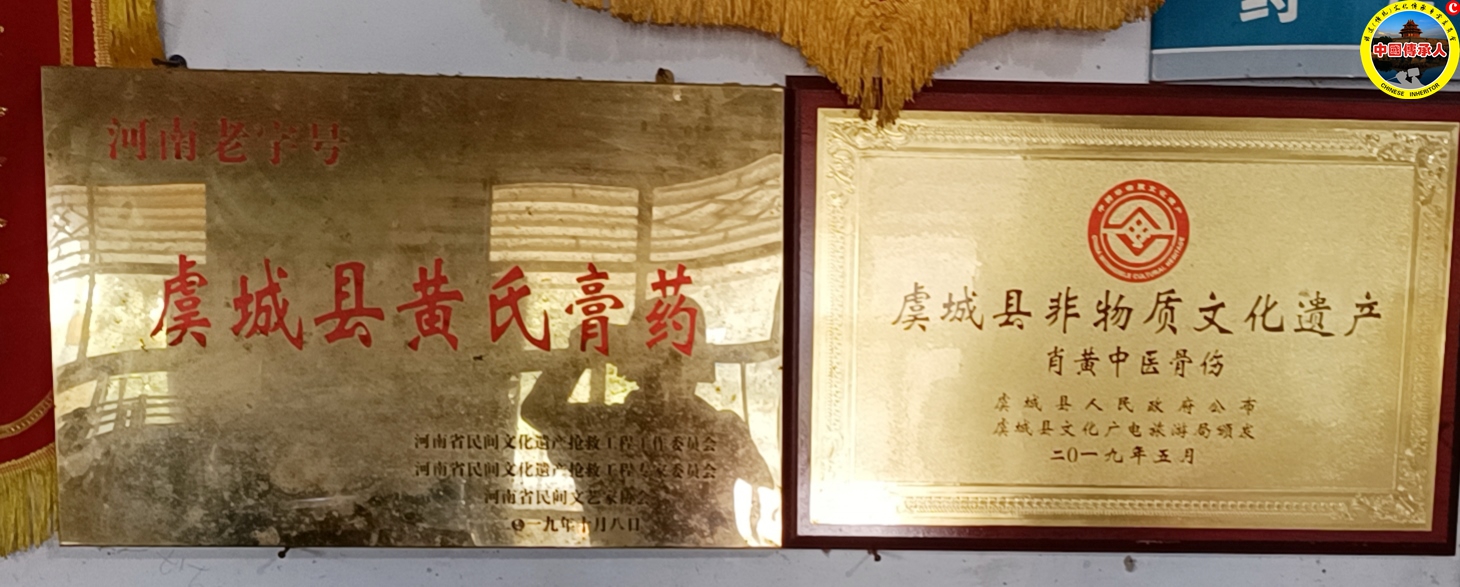 河南老字号
虞城县黄氏膏药
河南省民间文化遗产抢救工程工作委员会
河南省民间文化遗产抢救工程专家委员会
河南省民间文艺家协会
一九年十月八日
虞城县非物质文化遗产
肖黄中医骨伤
虞城县人民政府公布
虞城县文化广电旅游局颁发
二〇一九年五月
药
中國傳承人
CHINESE INHERITOR